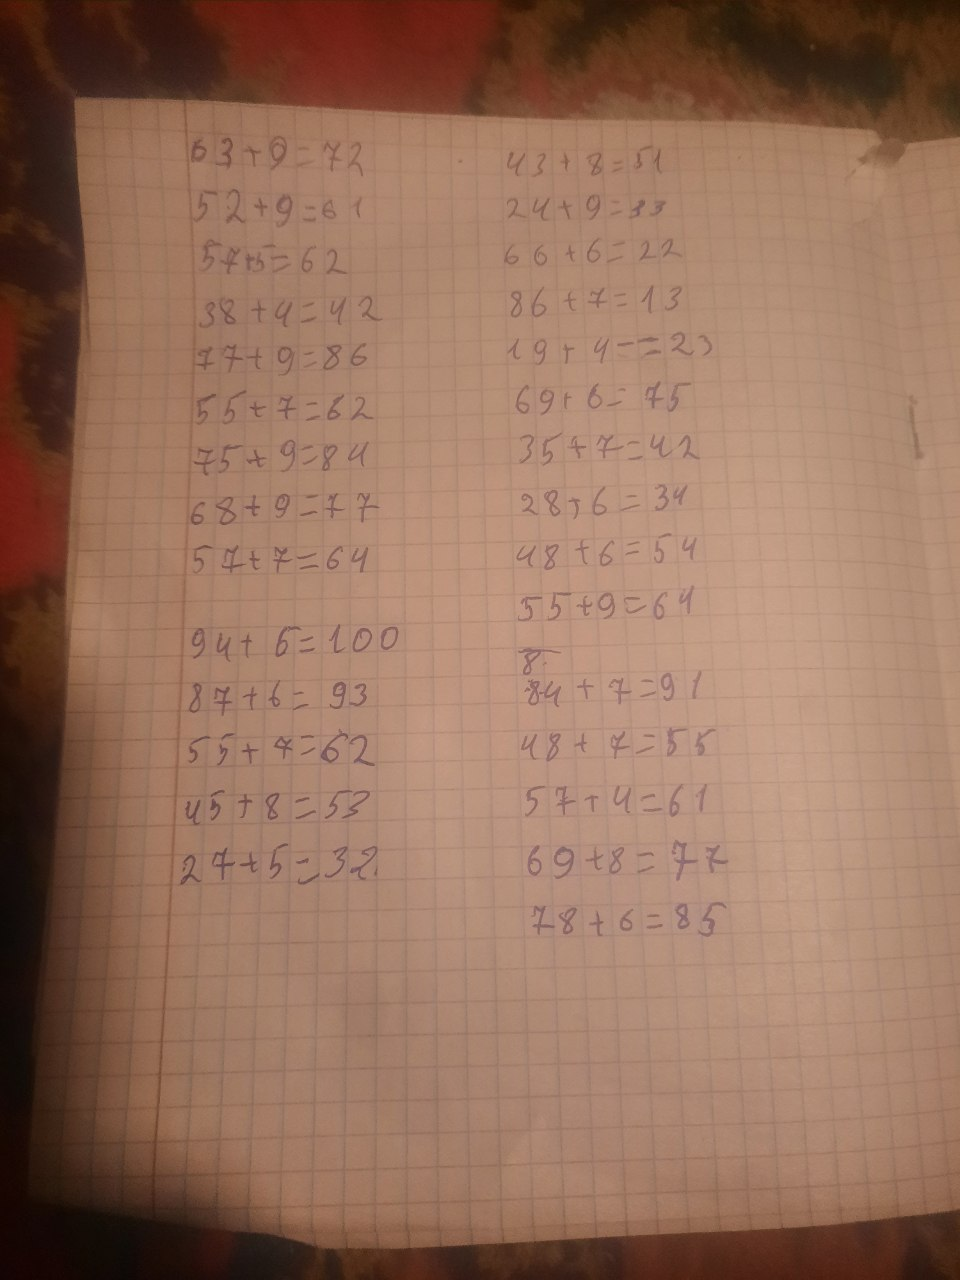 63+9=72
52+9=61
57+5=62
38+4=42
77+9=86
55+7=62
75+9=84
68+9=77
57+7=64
94+6=100
87+6=93
55+7=62
45+8=53
27+5=32
43+8=51
24+9=33
66+6=22
86+7=13
19+4-=23
69+6=75
35+7=42
28+6=34
48+6=54
55+9=64
8
84+7=91
48+7=55
57+4=61
69+8=77
78+6=85